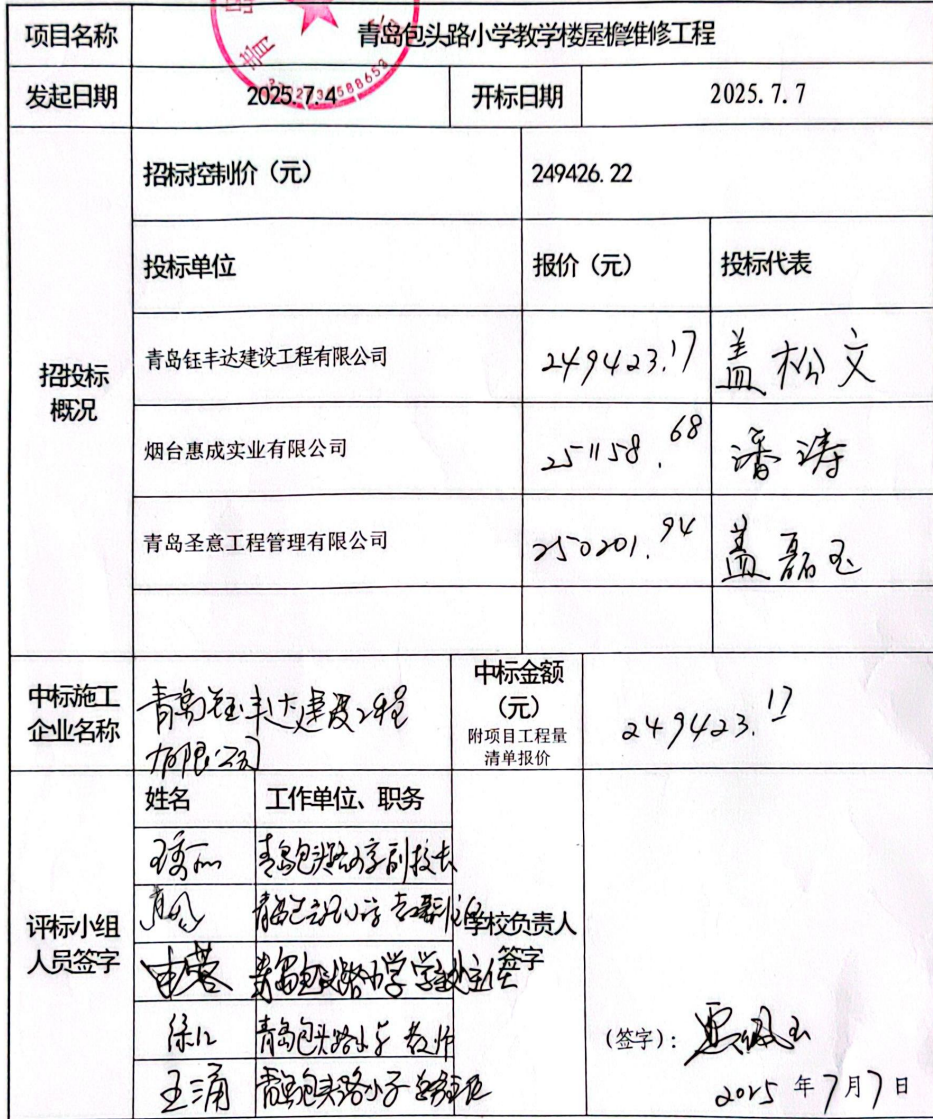 项目名称 青岛包头路小学教学楼屋檐维修工程
发起日期 2025.7.4 开标日期 2025.7.7
招标控制价（元） 249426.22
投标单位 报价（元） 投标代表
招投标
概况
青岛钰丰达建设工程有限公司 249423.17 盖松文
烟台惠成实业有限公司 251158.68 潘涛
青岛圣意工程管理有限公司 250201.94 盖磊玉
中标施工
企业名称
青岛钰丰达建设工程
有限公司
中标金额
（元）
附项目工程量
清单报价
249423.17
姓名 工作单位、职务
青岛包头路小学副校长
青岛包头路小学
评标小组
人员签字
学校负责人
签字
申蓉 青岛包头路小学 学 主任
徐 青岛包头路小学 教师
（签字）：
王涌 青岛包头路小学
2025 年 7 月 7 日